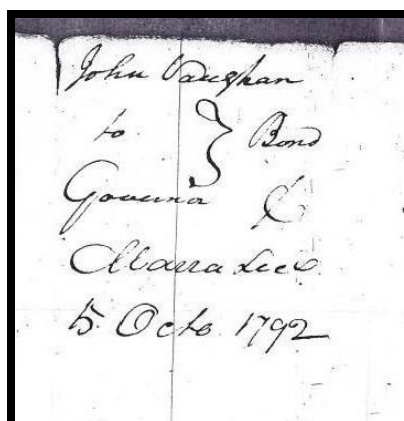 John Vaughan
to } Bond
Governor &
Marra Lice
5 Octo. 1792